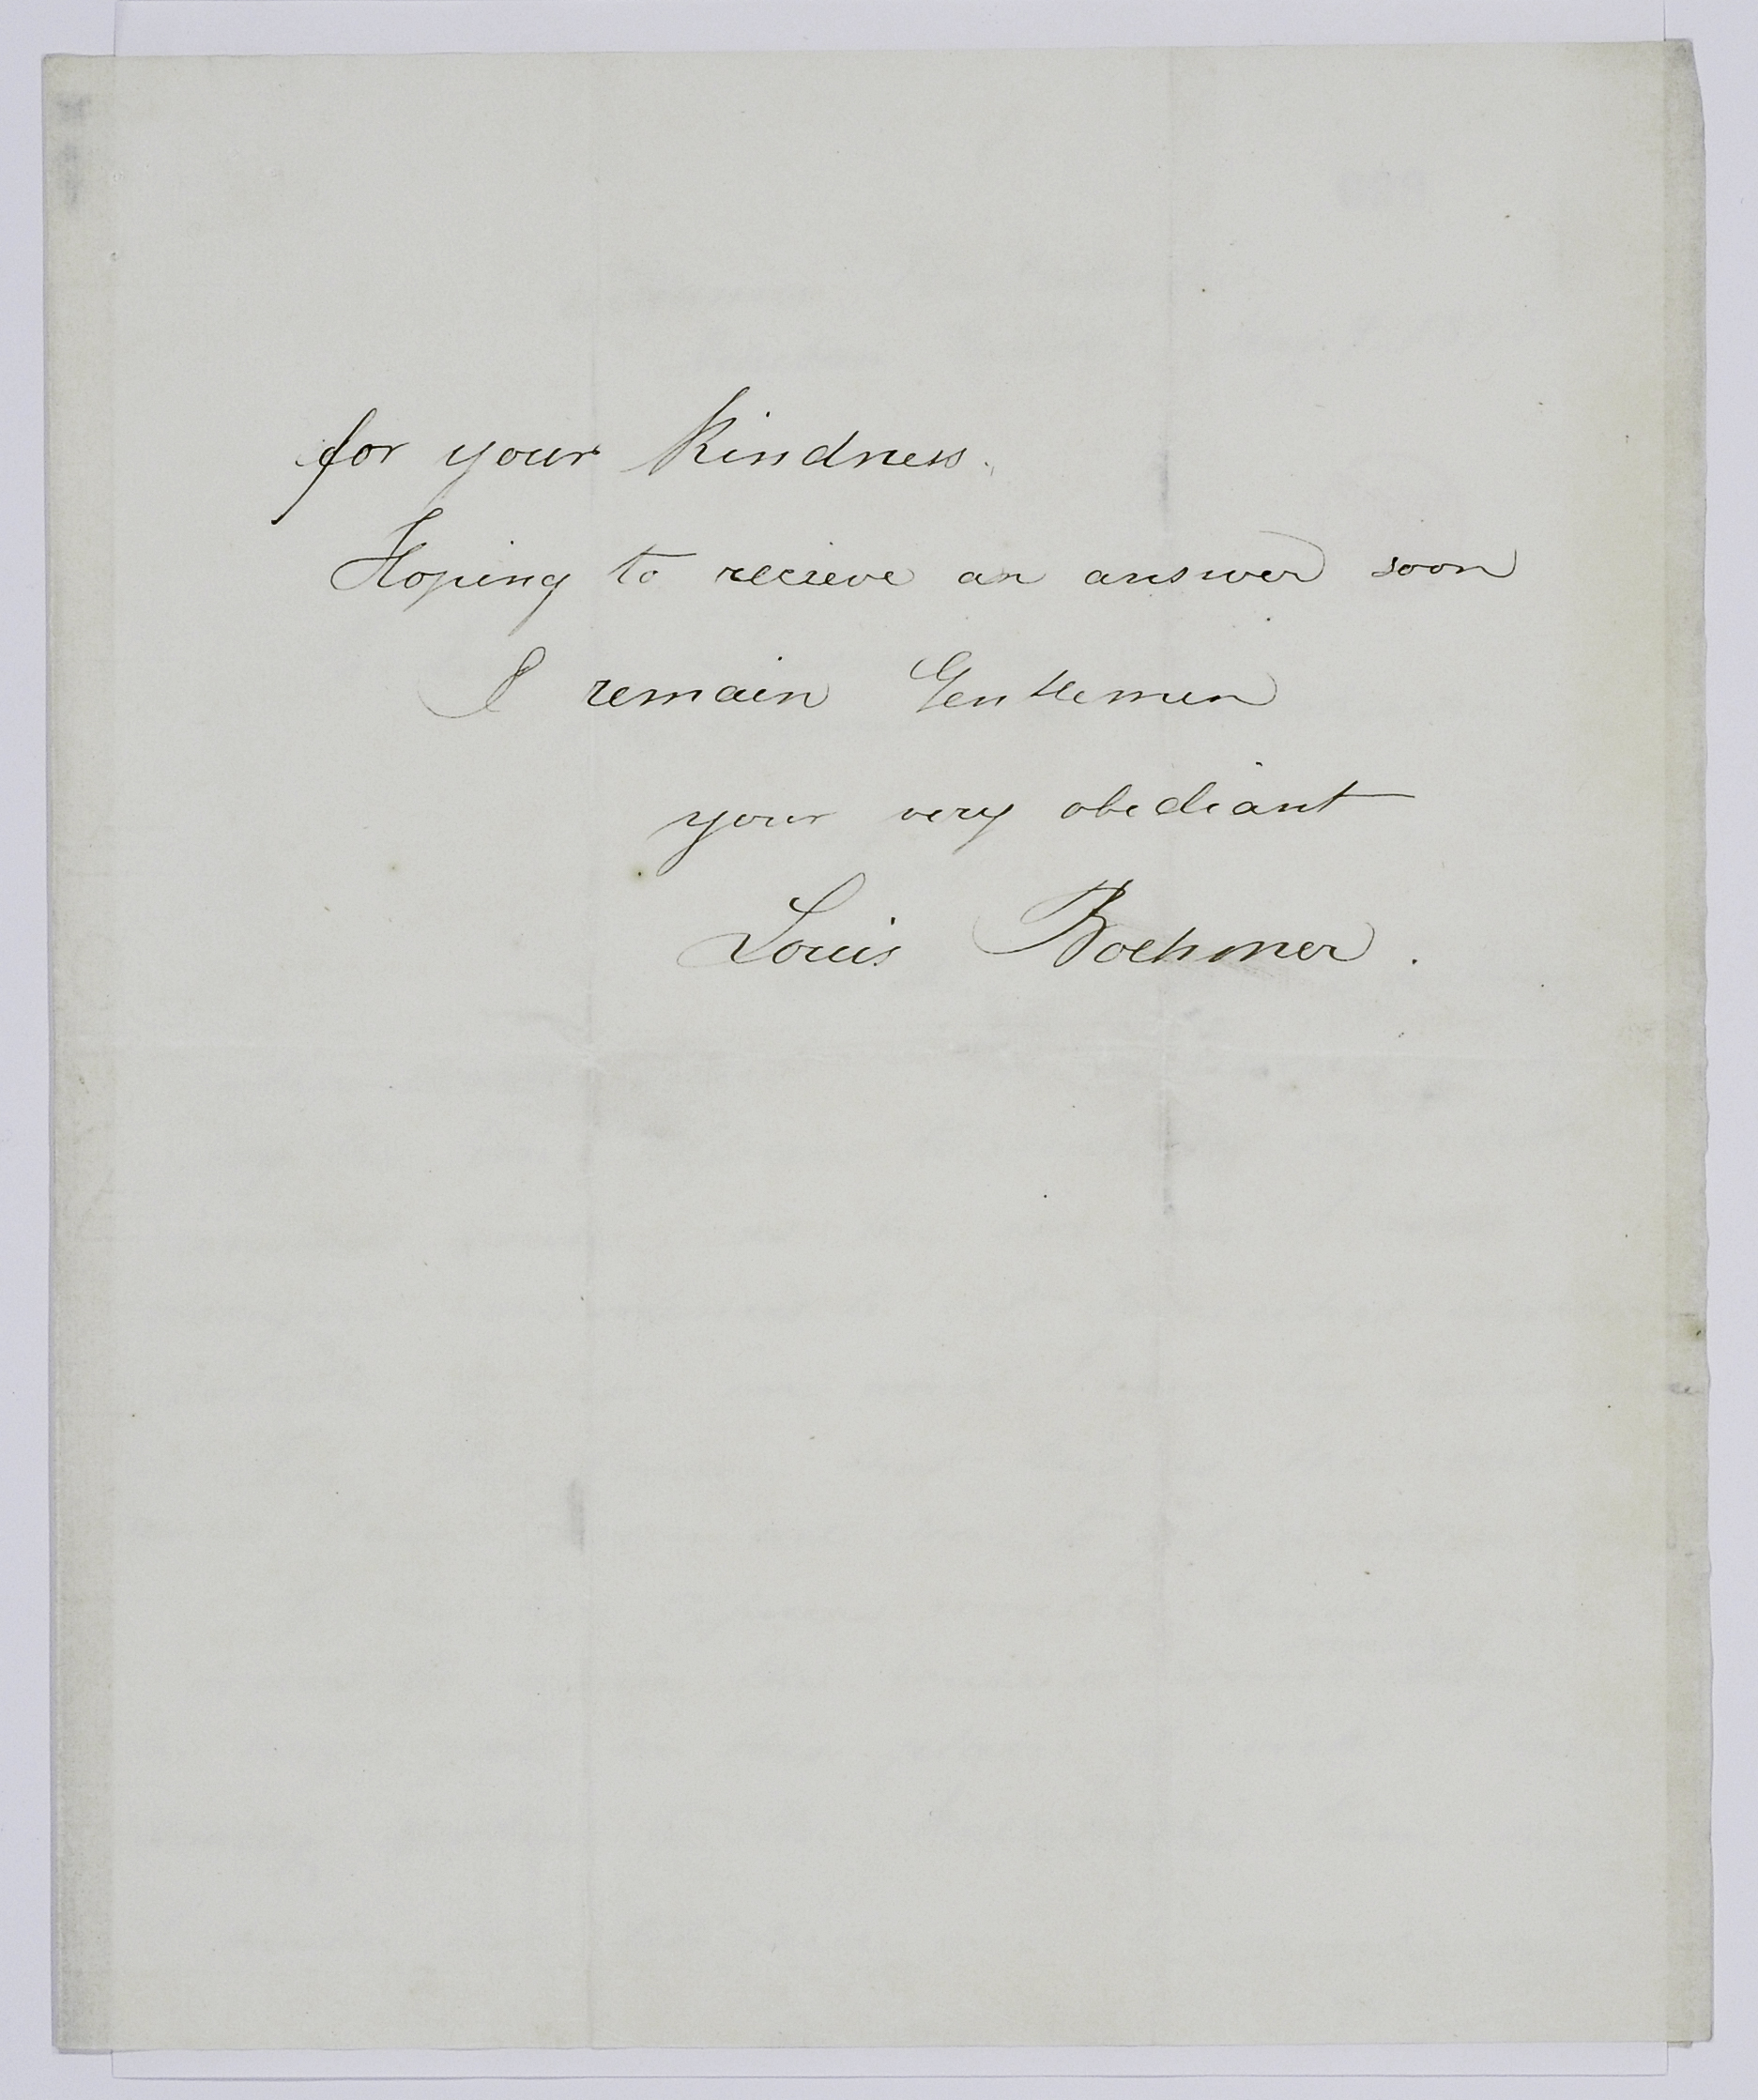 for your Kindness.
Hoping to recieve an answer soon
I remain Gentlemen
your very obediant
Louis Boehmer.